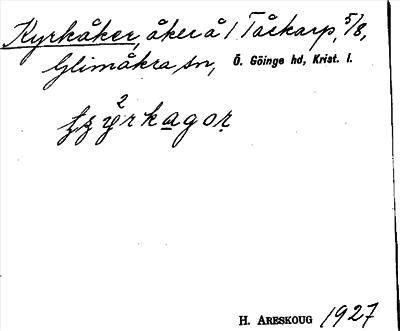 Kyrkåker, åker å 1 Tåskarp, 5/8,
Glimåkra sn, Ö. Göinge hd, Krist. l.
H. ARESKOUG 1927